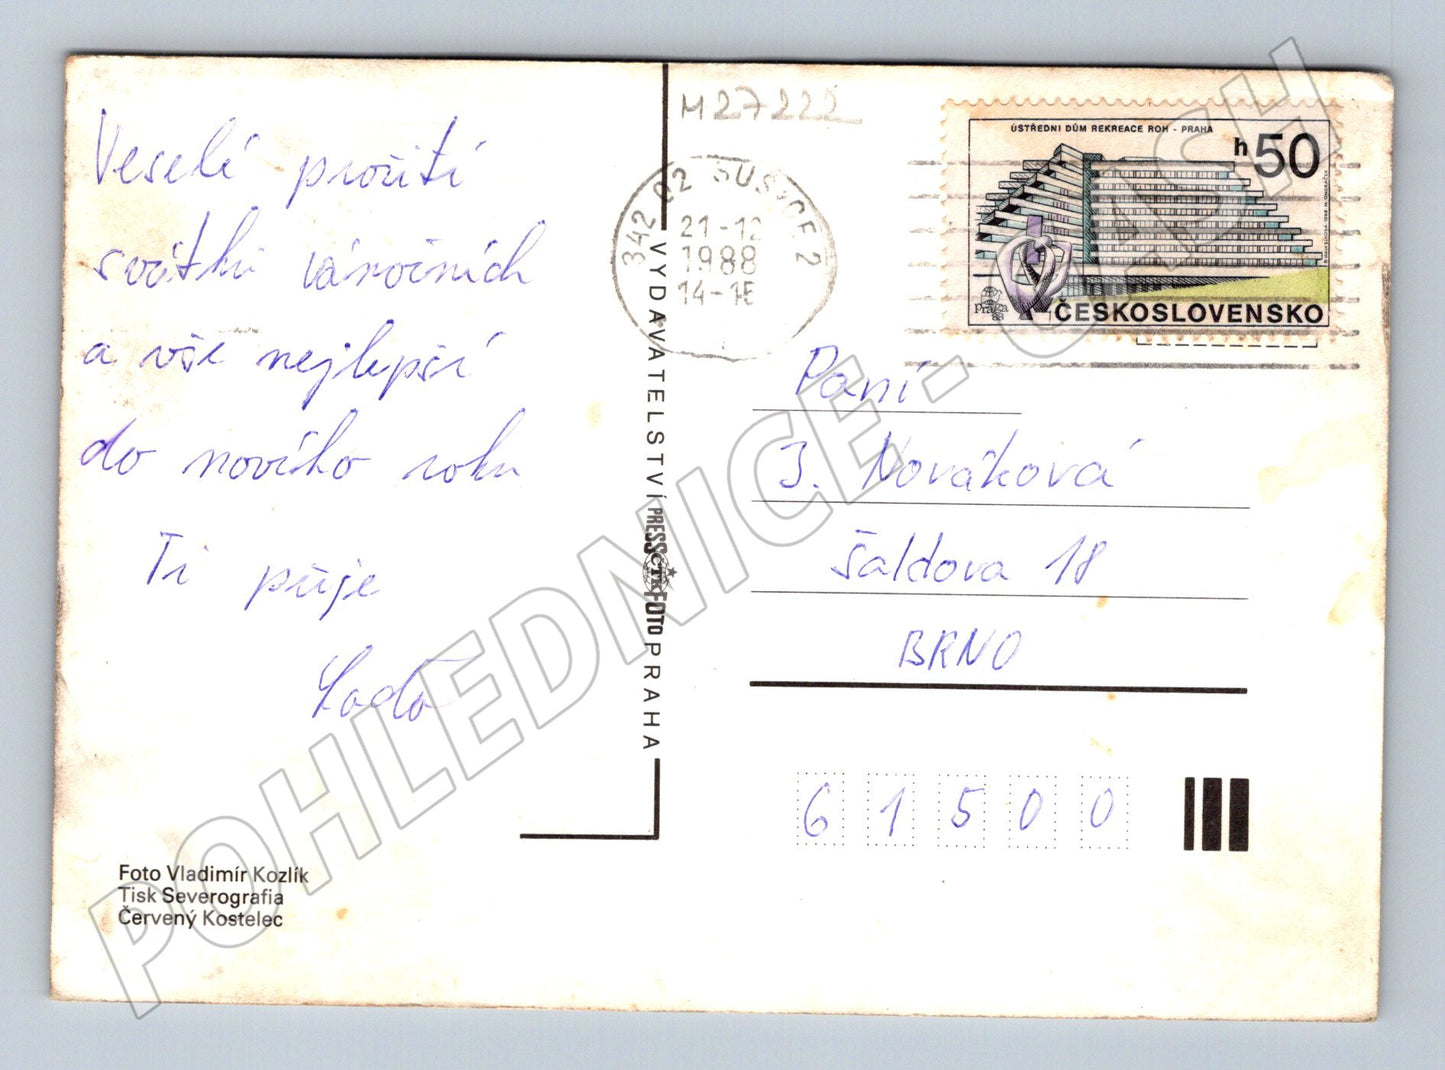 Veselé prožití
svátků vánočních
a vše nejlepší
do nového roku
Ti přeje
Laďa
Foto Vladimír Kozlík
Tisk Severografia
Červený Kostelec
VYDAVATELSTVÍ PRESSFOTO PRAHA
ČTK
M27222
342 02 SUŠICE 2
21-12
1988
14-15
ÚSTŘEDNÍ DŮM REKREACE ROH - PRAHA
h50
praga 88
ČESKOSLOVENSKO
Paní
J. Nováková
Šaldova 18
BRNO
61500
POHLEDNICE - CASH